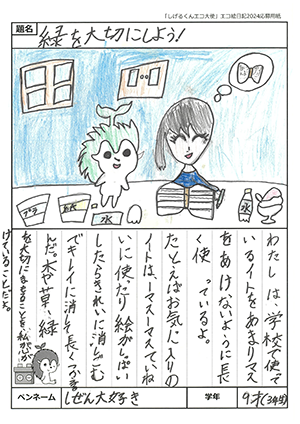 「しげるくんエコ大使」エコ絵日記2024応募用紙
題名
緑を大切にしよう!
プラ
水
氷
わたしは、学校で使って
いるノートをあまりマス
をあけないように長
く使っているよ。
たとえばお気に入りの
ノートは、一マス一マスていね
いに使ったり絵がしっぱい
したらきれいに消しごむ
でキレイに消して長くつかう
んだ。木や草、緑
を大切にすることを、私が心が
けていることだよ。
ペンネーム
しぜん大好き
学年
9才(3年生)